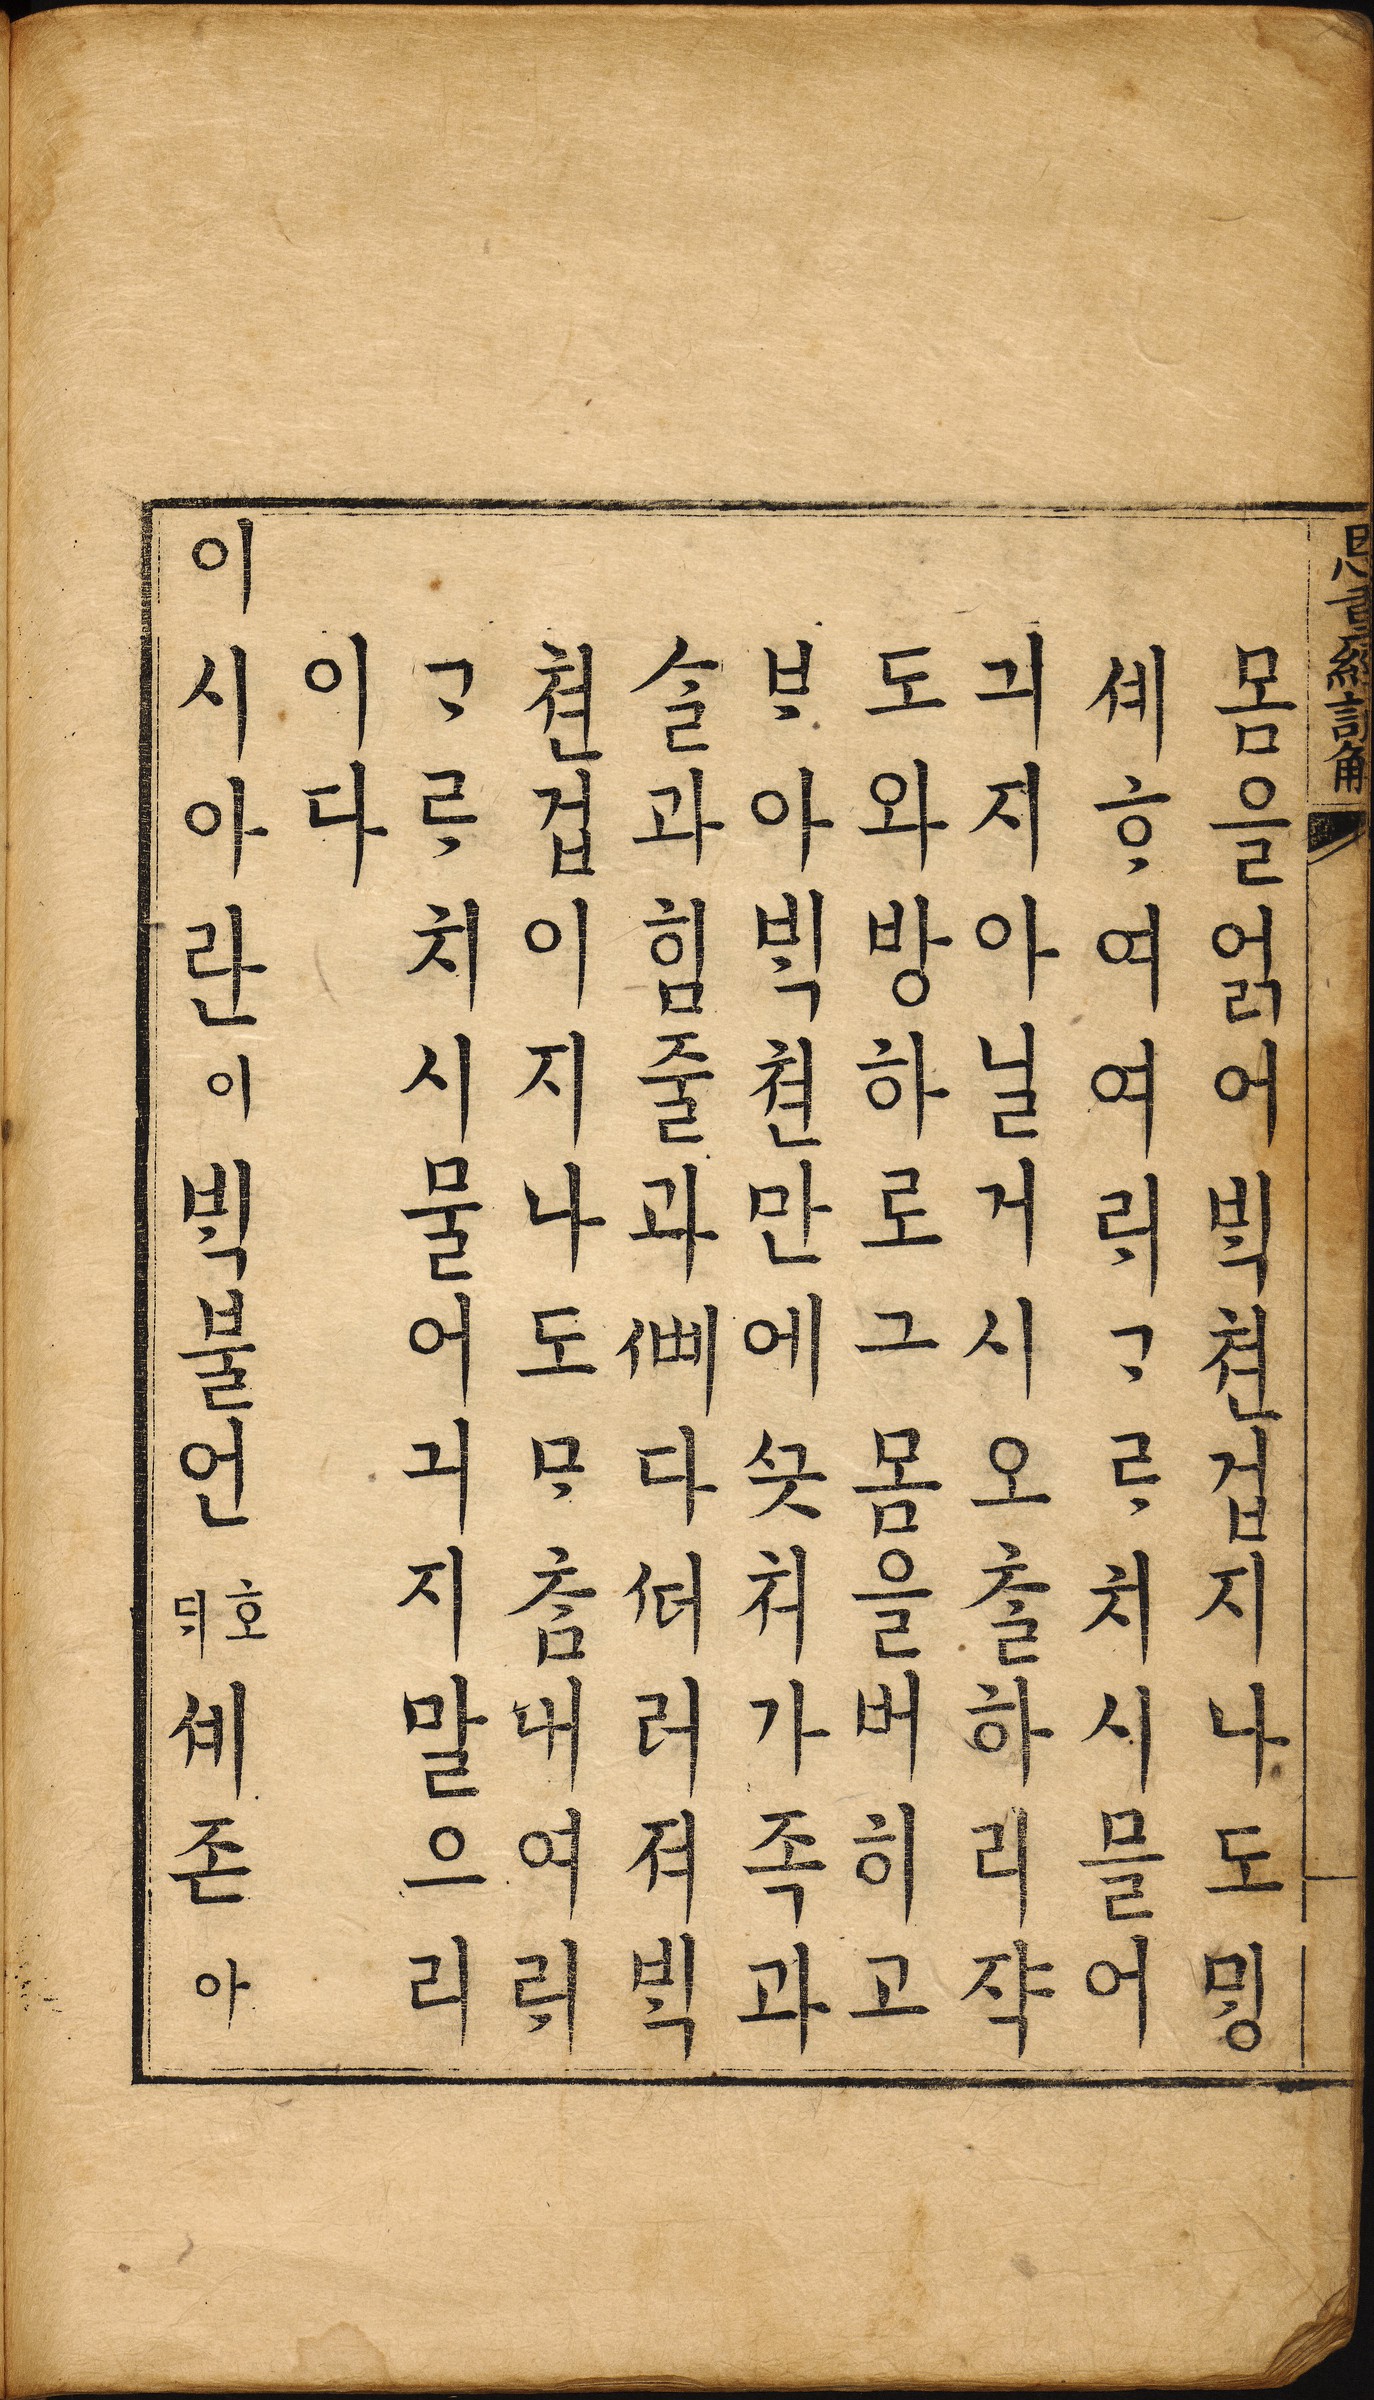 恩重經諺解
몸을얽어ᄇᆡᆨ쳔겁지나도ᄆᆡᆼ
셰ᄒᆞ여여ᄅᆡᄀᆞᄅᆞ치시믈어
긔지아닐거시오ᄎᆞᆯ하리쟉
도와방하로그몸을버히고
ᄇᆞ아ᄇᆡᆨ쳔만에ᄭᅳᆺ쳐가족과
ᄉᆞᆯ과힘줄과ᄲᅨ다ᄯᅥ러져ᄇᆡᆨ
쳔겁이지나도ᄆᆞᄎᆞᆷ내여ᄅᆡ
ᄀᆞᄅᆞ치시물어긔지말으리
이다
이시아란이ᄇᆡᆨ불언호ᄃᆡ셰존아